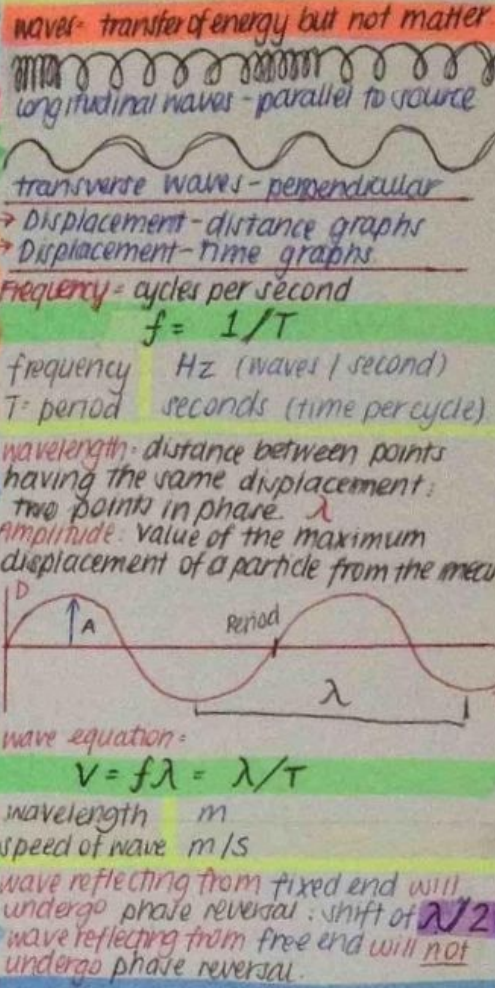 waves= transfer of energy but not matter.
longitudinal waves - parallel to source
transverse waves - perpendicular
→ Displacement - distance graphs
→ Displacement - time graphs
Frequency = cycles per second
f = 1/T
frequency Hz (waves / second)
T= period seconds (time per cycle)
wavelength: distance between points
having the same displacement:
two points in phase λ
Amplitude: value of the maximum
displacement of a particle from the
D
A
Period
λ
wave equation =
V = fλ = λ/T
wavelength m
speed of wave m/s
wave reflecting from fixed end will
undergo phase reversal: shift of λ/2
wave reflecting from free end will not
undergo phase reversal.